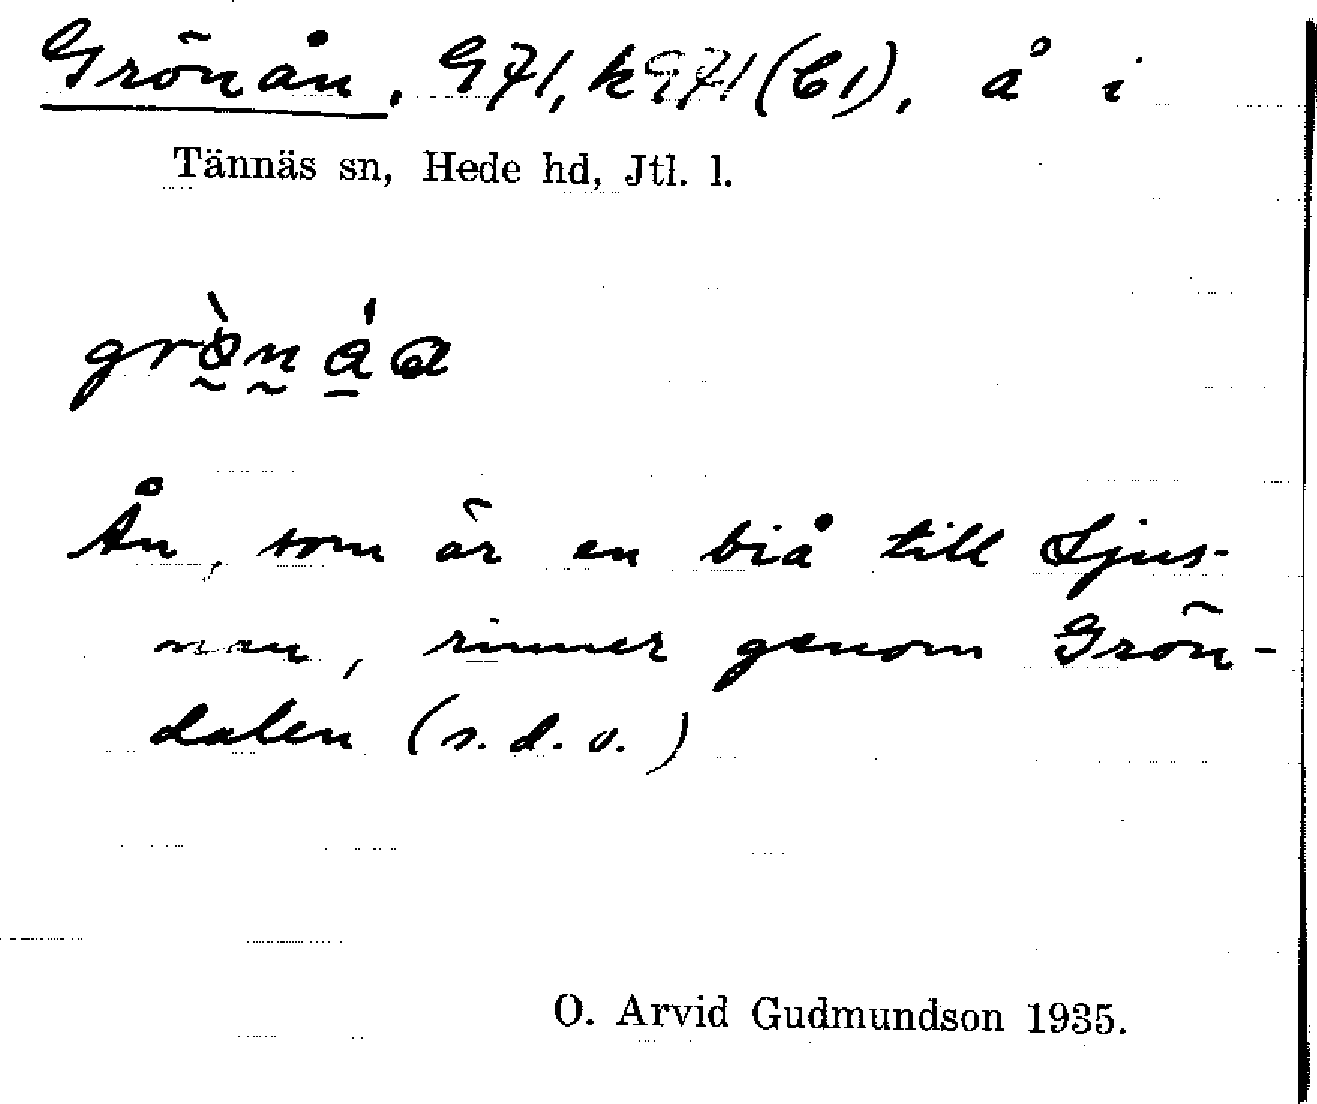 Grönån, G71, kG71 (C1), å i
Tännäs sn, Hede hd, Jtl. l.
Ån, som är en biå till Ljus-
nan, rinner genom Grön-
dalen (s. d. o.)
O. Arvid Gudmundson 1935.